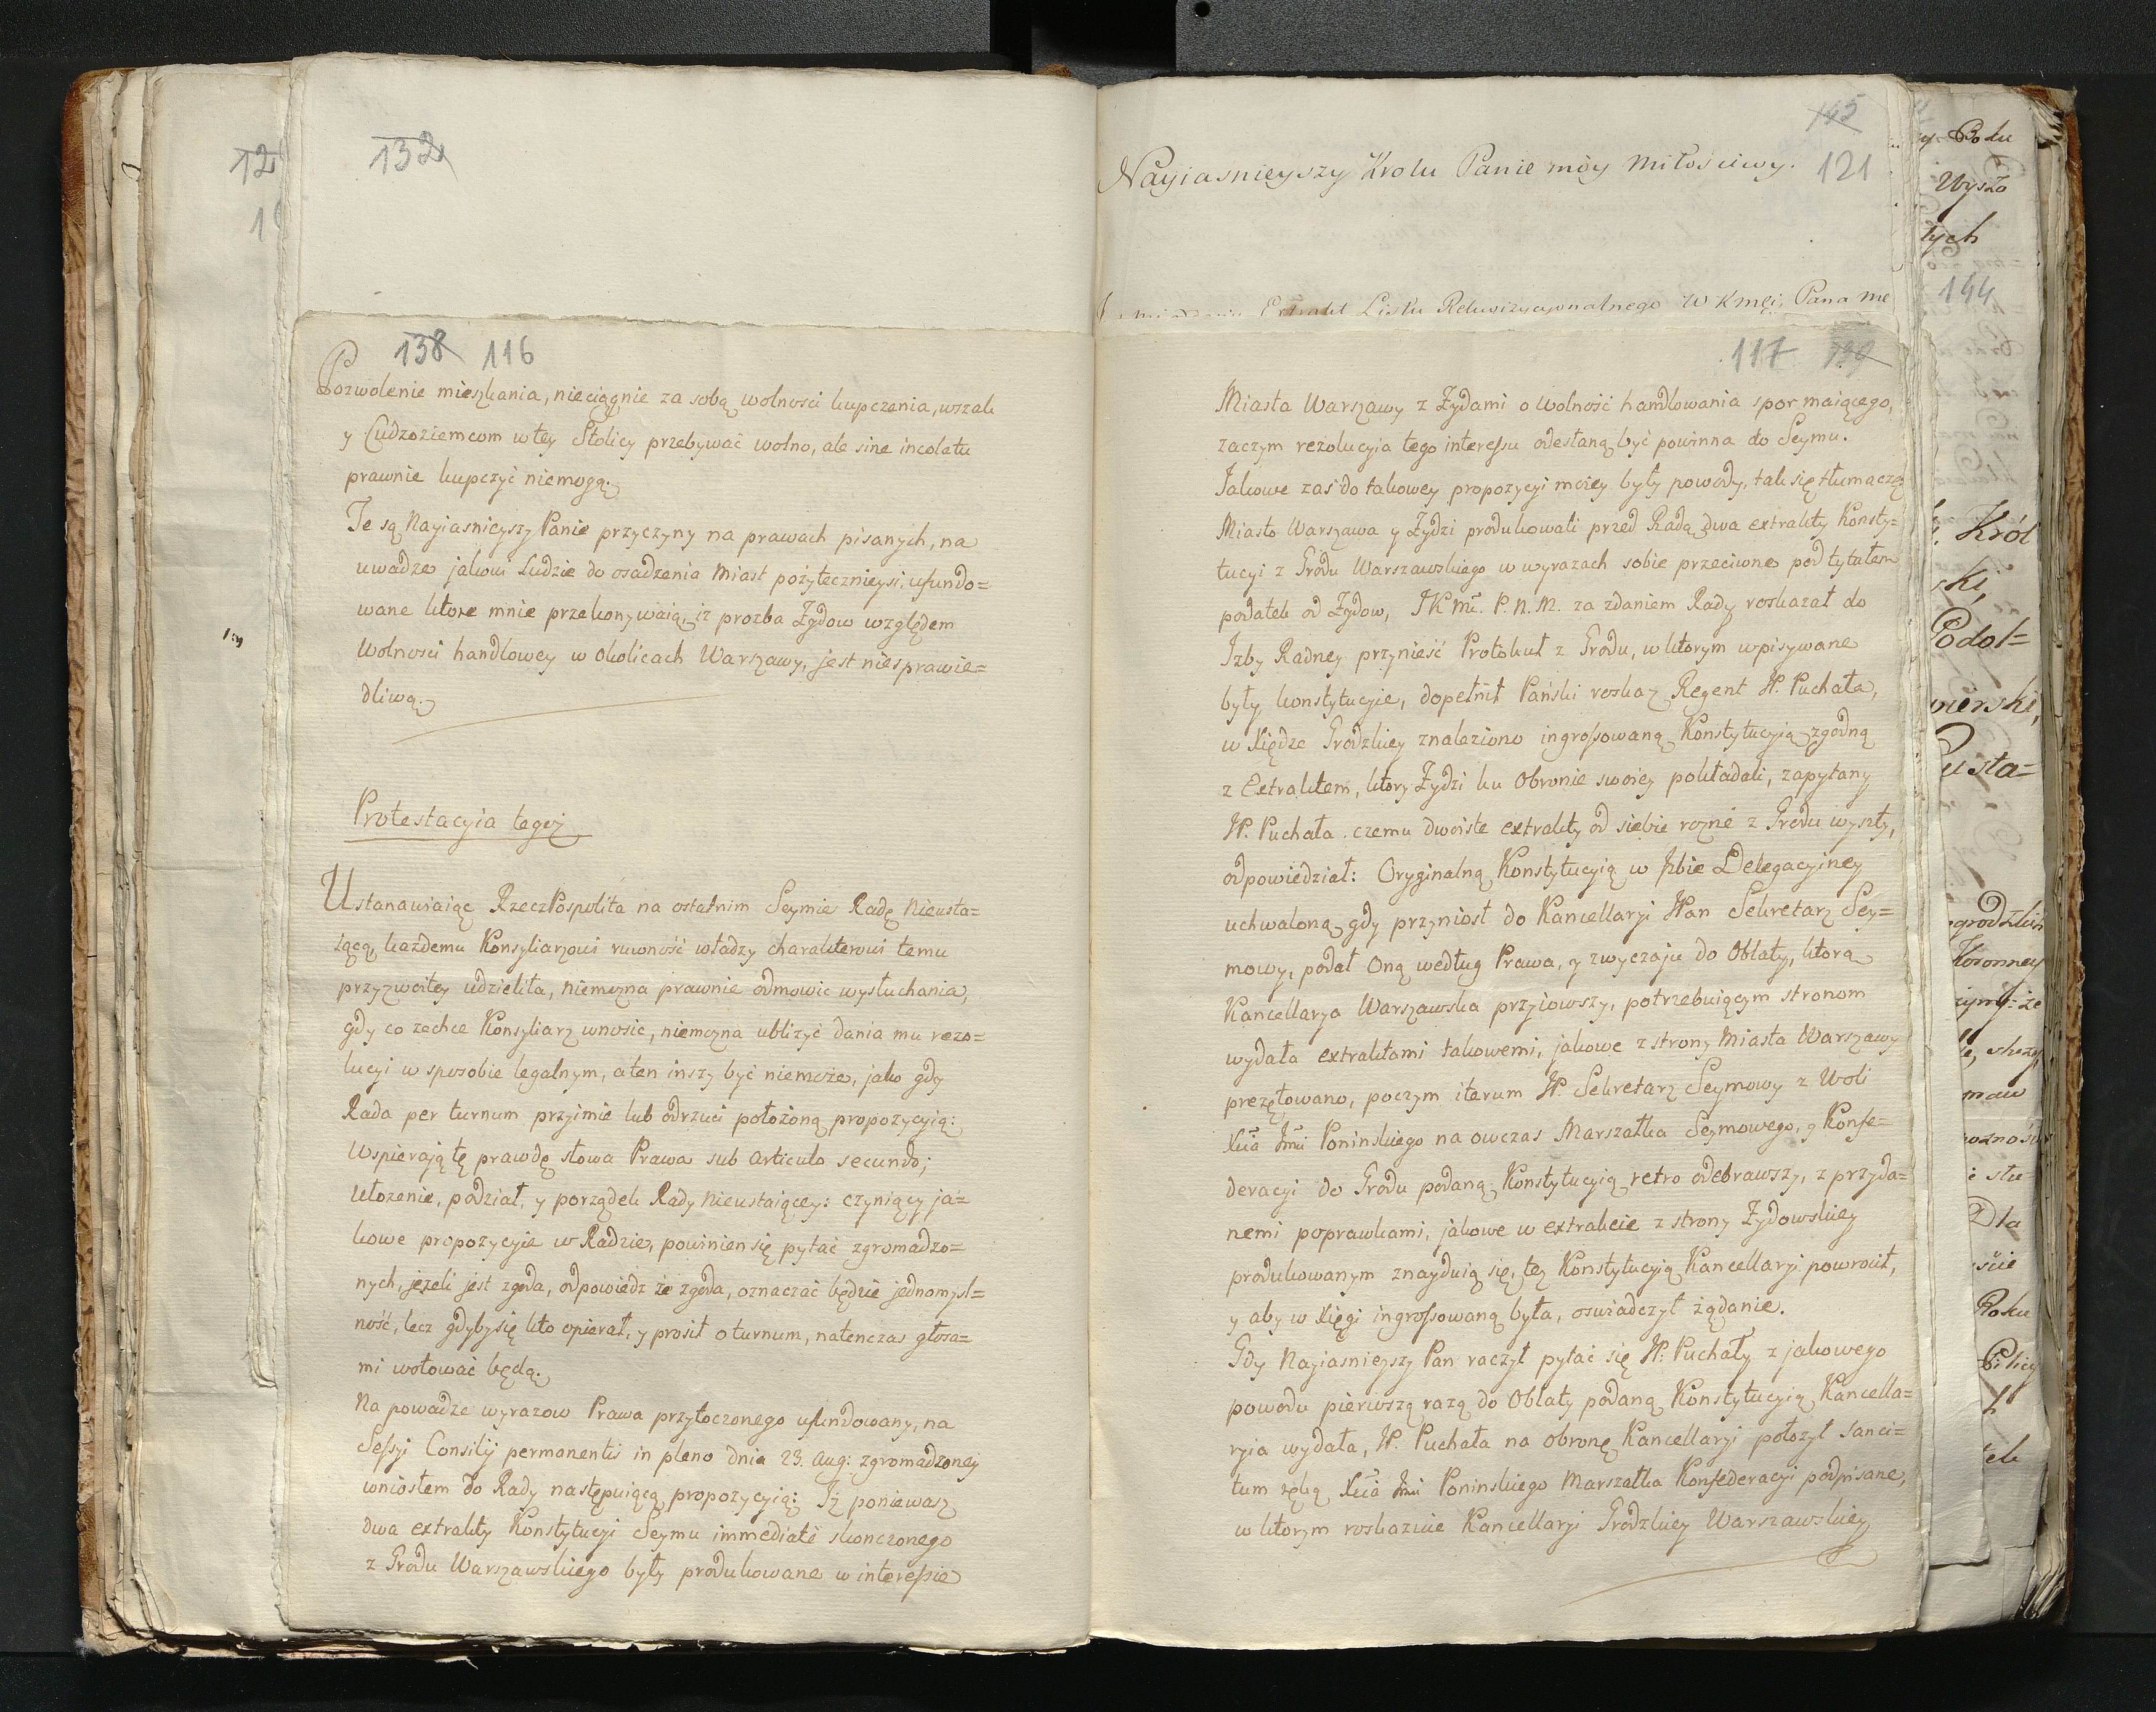 132
138 116
Pozwolenie mieszkania, nieciągnie za sobą wolnosci kupczenia, wszak
y Cudzoziemcom w tey Stolicy przebywać wolno, ale sine incolatu
prawnie kupczyć niemogą.
Te są Nayiasnieyszy Panie przyczyny na prawach pisanych, na
uwadze jakowi Ludzie do osadzenia Miast pożytecznieysi, ufundo=
wane ktore mnie przekonywaią, iz prozba Zydow względem
Wolnosci handlowey w Okolicach Warszawy, jest niesprawie=
dliwą.
Protestacyia tegoż
Ustanawiaiąc RzeczPospolita na ostatnim Seymie Radę Nieusta=
iącą, kazdemu Konsyliarzowi rowność władzy charakterowi temu
przyzwoitey udzieliła, niemozna prawnie odmowic wysłuchania,
gdy co zechce Konsyliarz wnosic, niemozna ublizyć dania mu rezo=
lucyi w sposobie legalnym, a ten inszy być niemoże, jako gdy
Rada per turnum przyimie lub odrzuci położoną propozycyią:
Wspierają tę prawdę słowa Prawa sub Articulo secundo;
Ułozenie, podział, y porządek Rady Nieustaiącey: czyniący ja=
kowe propozycyie w Radzie, powinien się pytać zgromadzo=
nych, jezeli jest zgoda, odpowiedz że zgoda, oznaczać będzie jednomysl=
ność, lecz gdyby się kto opierał, y prosił o turnum, natenczas głosa=
mi wotować będą.
Na powadze wyrazow Prawa przytoczonego ufundowany, na
Sessyi Consilij permanentis in pleno dnia 23. Aug: zgromadzoney
wniosłem do Rady następuiącą propozycyią: Iż poniewasz
dwa extrakty Konstytucyi Seymu immediatè skonczonego
z Grodu Warszawskiego były produkowane w interessie
145
121
Nayiasnieyszy Krolu Panie móy Miłosciwy.
Extrakt Listu Rekwizycyonalnego W Kmći, Pana me
117 139
Miasta Warszawy z Zydami o Wolność handlowania spor maiącego,
zaczym rezolucyia tego interessu odesłaną być powinna do Seymu.
Jakowe zaś do takowey propozycyi moiey były powody, tak się tłumaczę
Miasto Warszawa y Zydzi produkowali przed Radą dwa extrakty Konsty=
tucyi z Grodu Warszawskiego w wyrazach sobie przeciwne pod tytułem
podatek od Zydow, JKMć. P. N. M. za zdaniem Rady roskazał do
Izby Radney przynieść Protokuł z Grodu, w ktorym wpisywane
były konstytucyie, dopełnił Pański roskaz Regent JP. Puchała,
w Xiędze Grodzkiey znaleziono ingrossowaną Konstytucyią zgodną
z Extraktem, ktory Zydzi ku Obronie swoiey pokładali, zapytany
JP. Puchała. czemu dwoiste extrakty od siebie rożne z Grodu wyszły,
odpowiedział: Oryginalną Konstytucyią w Izbie Delegacyiney
uchwaloną gdy przyniosł do Kancellaryi JPan Sekretarz Sey=
mowy, podał Oną według Prawa, y zwyczaju do Oblaty, ktorą
Kancellarya Warszawska przyiowszy, potrzebuiącym stronom
wydała extraktami takowemi, jakowe z strony Miasta Warszawy
prezętowano, poczym iterum JP. Sekretarz Seymowy z Woli
Xcia Jmći Poninskiego na owczas Marszałka Seymowego, y Konfe=
deracyi do Grodu podaną Konstytucyią retro odebrawszy, z przyda=
nemi poprawkami, jakowe w extrakcie z strony Zydowskiey
produkowanym znayduią się, tęż Konstytucyią Kancellaryi powrocił,
y aby w Xięgi ingrossowaną była, oswiadczył żądanie.
Gdy Nayiasnieyszy Pan raczył pytać się JP: Puchały z jakowego
powodu pierwszą razą do Oblaty podaną Konstytucyią Kancella=
ryia wydała, JP. Puchała na obronę Kancellaryi położył Sanci=
tum ręką Xcia Jmći Poninskiego Marszałka Konfederacyi podpisane,
w ktorym roskazuie Kancellaryi Grodzkiey Warszawskiey
144